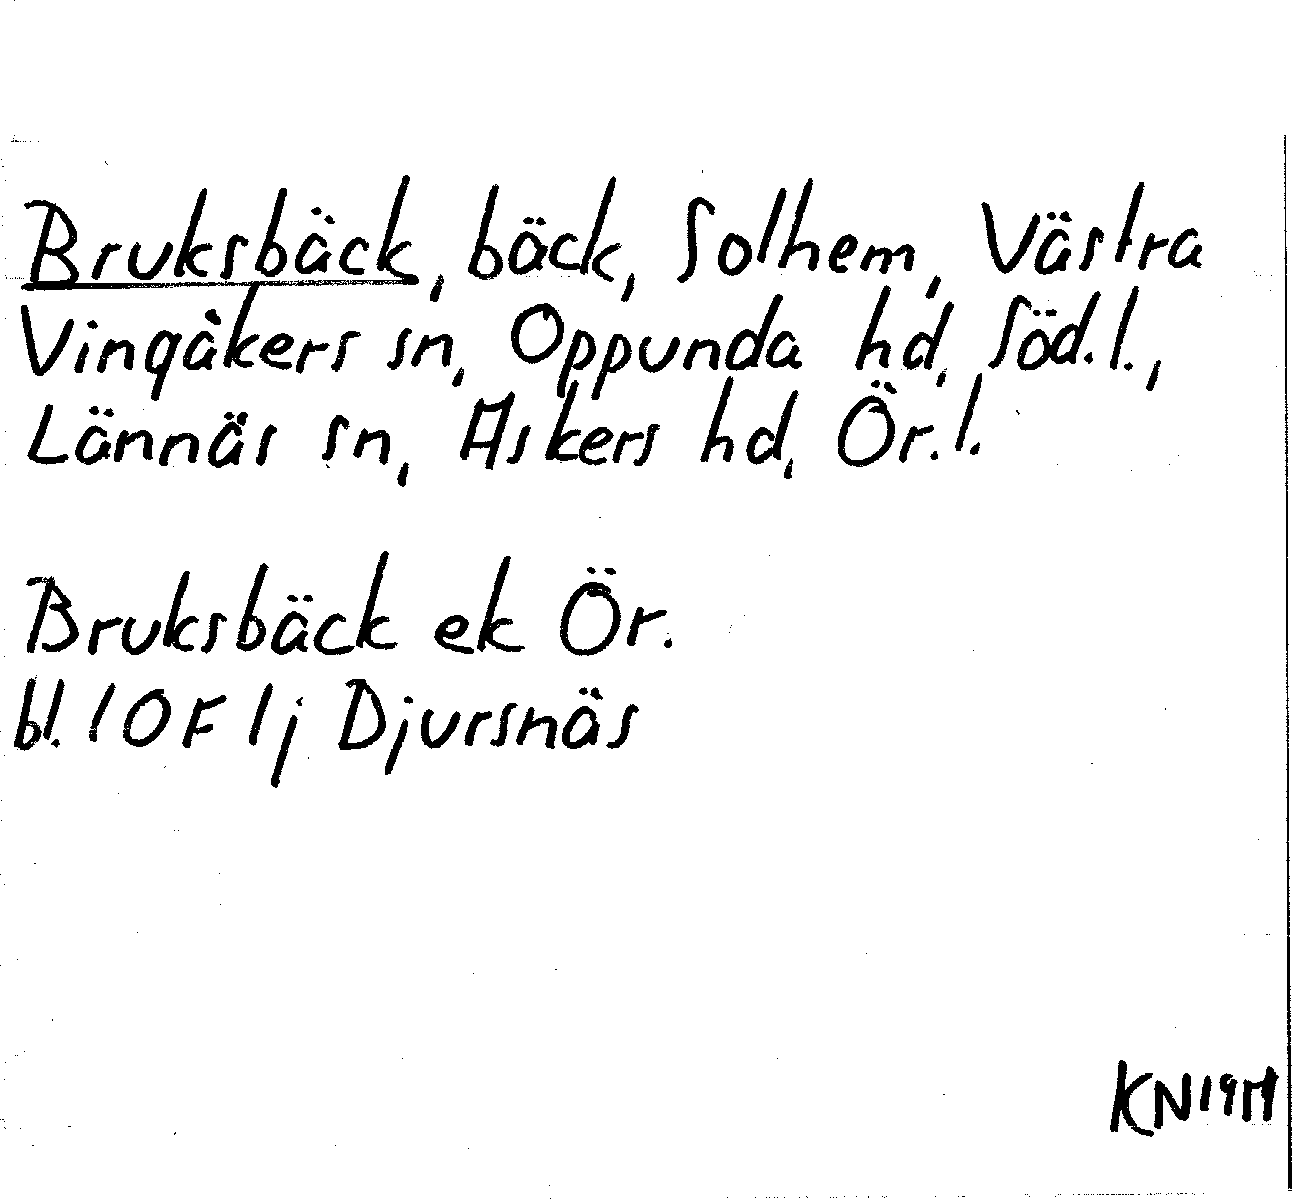 Bruksbäck, bäck, Solhem, Västra
Vingåkers sn, Oppunda hd, Söd.l.,
Lännäs sn, Askers hd, Ör.l.
Bruksbäck ek Ör.
bl. 10F 1j Djursnäs
KN